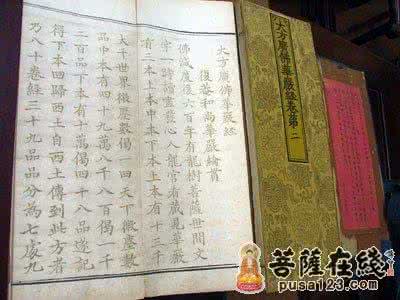 大方廣佛華嚴經
復菴和尚華嚴綸貫
佛滅度後六百年有龍樹菩薩世間文
字一時讀盡發心入龍宮看藏見華嚴
有三本上本中本下本上本有十三千
大千世界微塵數偈一四天下微塵數
品中本有四十九萬八千八百偈一千
二百品下本有十萬偈四十八品遂記
得下本回歸西土自西土傳到此方者
乃八十卷經三十九品品分為七處九
大方廣佛華嚴經卷第二
菩薩在線
pusa123.com